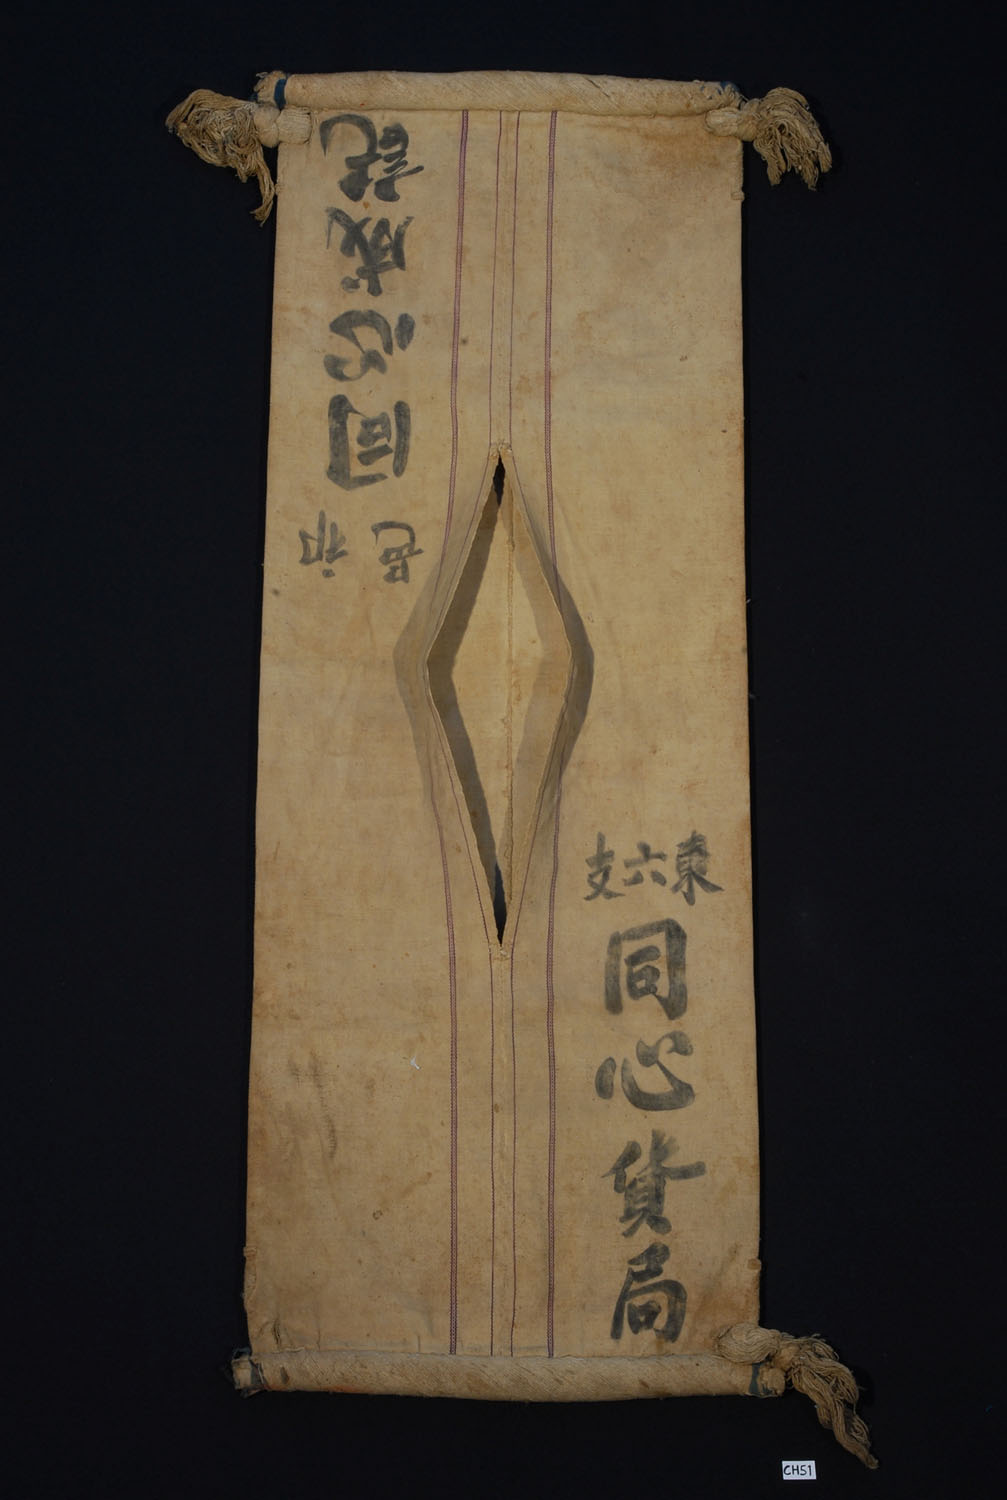 東六支
同心貨局
祁邑
同心成記
CH51